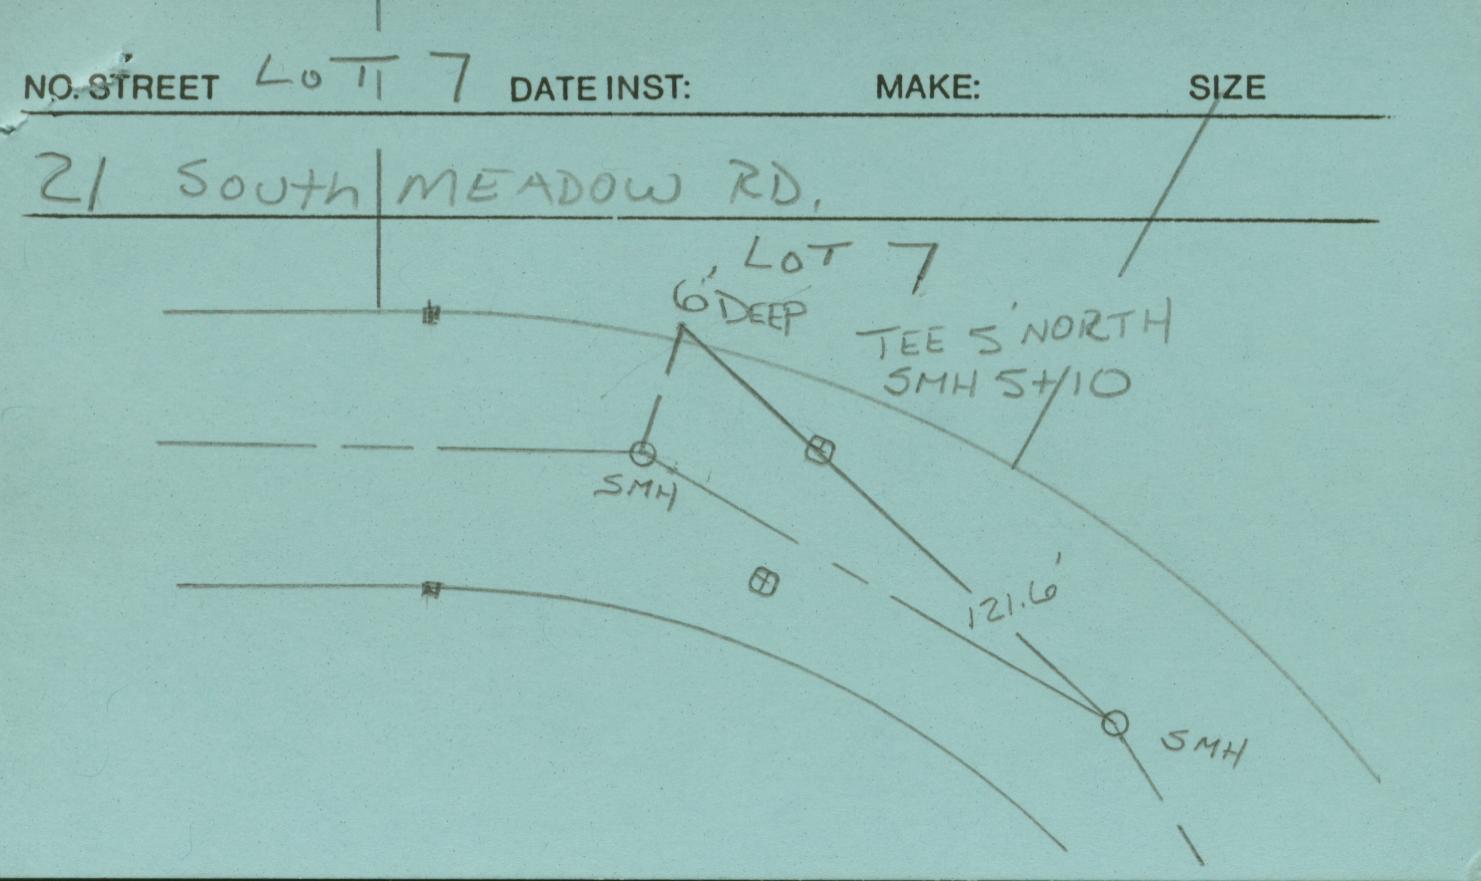 NO. STREET LOT 7 DATE INST: MAKE: SIZE
21 South MEADOW RD.
LOT 7
6' DEEP
TEE 5' NORTH
SMH 5+10
SMH
121.6'
SMH